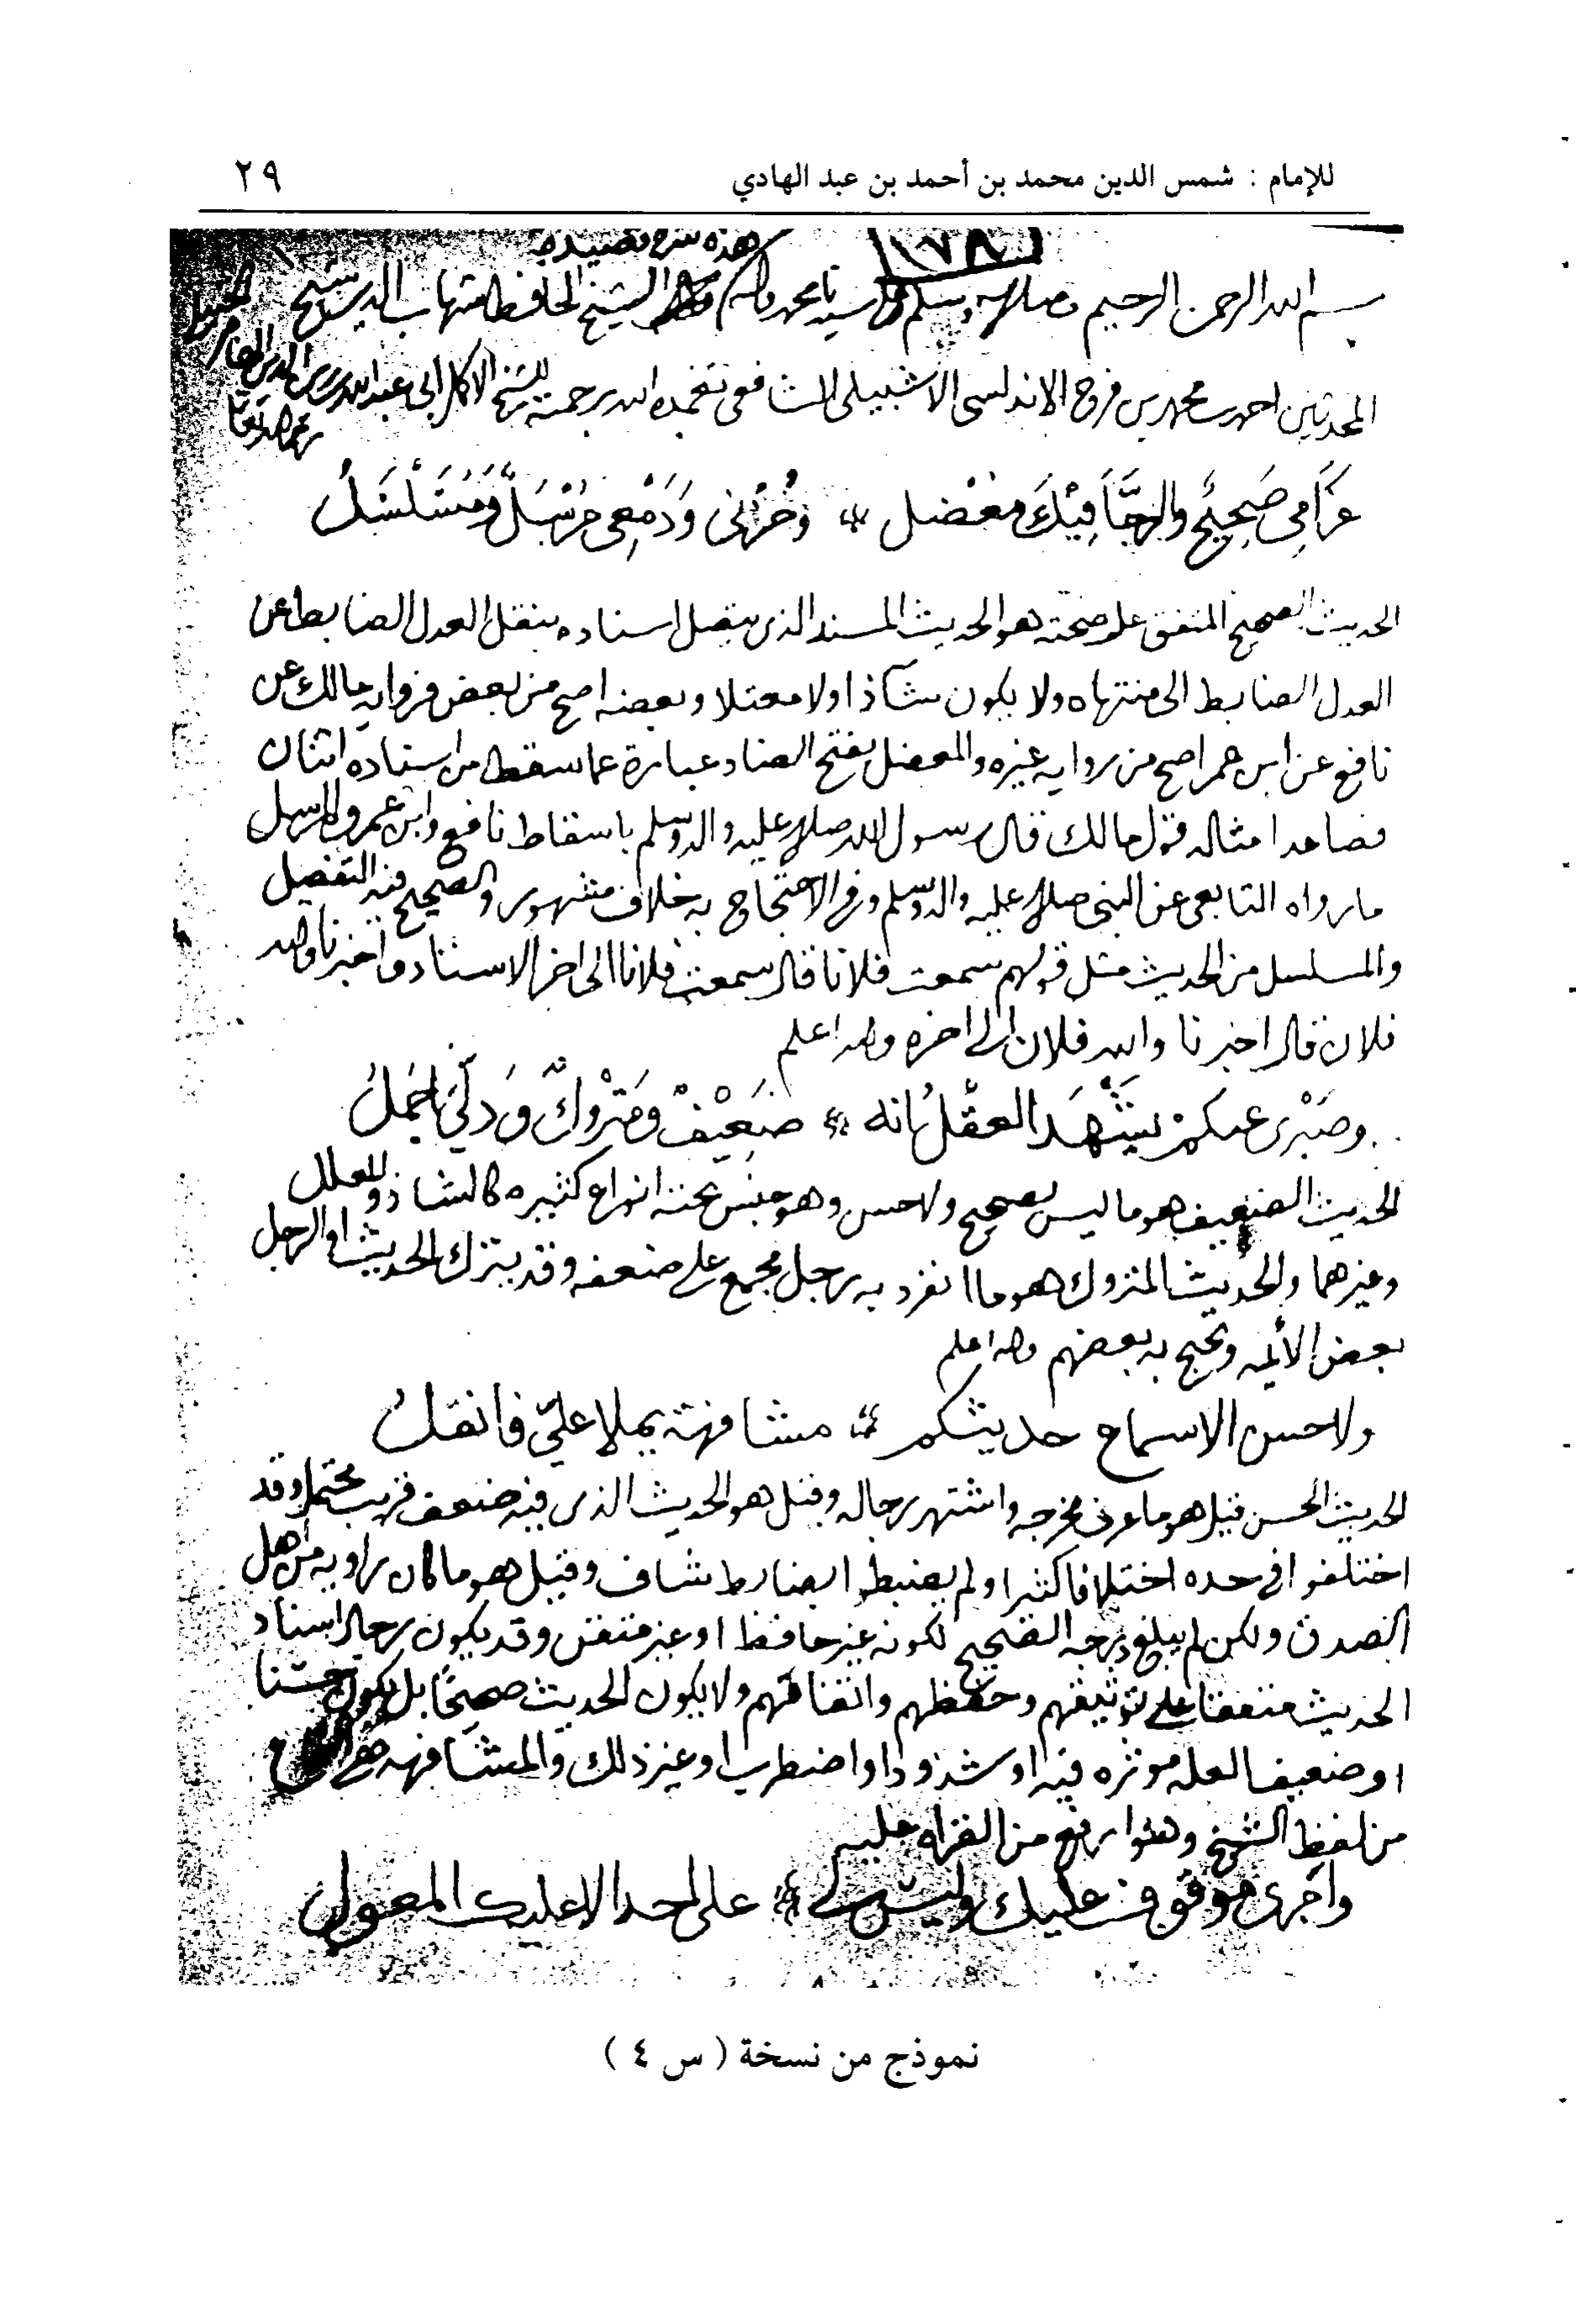 للإمام : شمس الدين محمد بن أحمد بن عبد الهادي ٢٩
هذه شرح قصيدة
١٧٨
بسم الله الرحمن الرحيم وصلى الله وسلم على سيدنا محمد واله الشيخ الحافظ شهاب الدين شيخ
المحدثين احمد بن محمد بن فرح الاندلسى الاشبيلى الشافعى تغمده الله برحمته للشيخ الاكل ابى عبد الله
غَرَامِى صَحِيْحٌ والرجَّا فِيْكَ مُعْضل وَحُزْنِى وَدَمْعِى مُرْسَلٌ وَمُسَلْسَلُ
الحديث الصحيح المتفق على صحته هو الحديث المسند الذى يتصل اسناده بنقل العدل الضابط عن
العدل الضابط الى منتهاه ولا يكون شاذا ولا معتلا وبعضه اصح من بعض فرواية مالك عن
نافع عن ابن عمر اصح من رواية غيره والمعضل بفتح الضاد عبارة عما سقط من اسناده اثنان
فصاعدا مثاله قول مالك قال رسول الله صلى الله عليه واله وسلم باسقاط نافع وابن عمر والمرسل
ما رواه التابعى عن النبى صلى الله عليه واله وسلم وفى الاحتجاج به خلاف مشهور والصحيح فيه التفصيل
والمسلسل من الحديث مثل قولهم سمعت فلانا قال سمعت فلانا الى اخر الاسناد واخبرنا والله
فلان قال اخبرنا والله فلان الى اخره والله اعلم
وصَبْرى عنكم يَشْهَد العقْلُ انه ضَعِيْفٌ وَمَتْرُوكٌ وَذلّىَ اجْمَلُ
الحديث الضعيف هو ما ليس بصحيح ولا حسن وهو جنس تحته انواع كثيره كالشاذ والمعلل
وغيرهما والحديث المتروك هو ما انفرد به رجل مجمع على ضعفه وقد يترك الحديث او الرجل
بعض الأئمه ويحتج به بعضهم والله اعلم
ولا حسن الا سماع حديثكم مشافهة يملا علىّ فانقلُ
الحديث الحسن قيل هو ما عرف مخرجه واشتهر رجاله وقيل هو الحديث الذى فيه ضعف قريب محتمل وقد
اختلفوا فى حده اختلافا كثيرا ولم يضبط ابضابط شاف وقيل هو ما كان راويه من أهل
الصدق ولكن لم يبلغ درجه الصحيح لكونه غير حافظ او غير متقن وقد يكون رجال اسناد
الحديث متفقا على توثيقهم وحفظهم واتقانهم ولا يكون الحديث صحيحًا بل يكون حسنا
او ضعيفا لعله موثره فيه او شذوذ او اضطراب او غير ذلك والمشافهه هى
من لفظ الشيخ وهو ارفع من القراه عليه
وامرى موقوف عليك وليس لى على احد الا عليك المعول
نموذج من نسخة ( س ٤ )